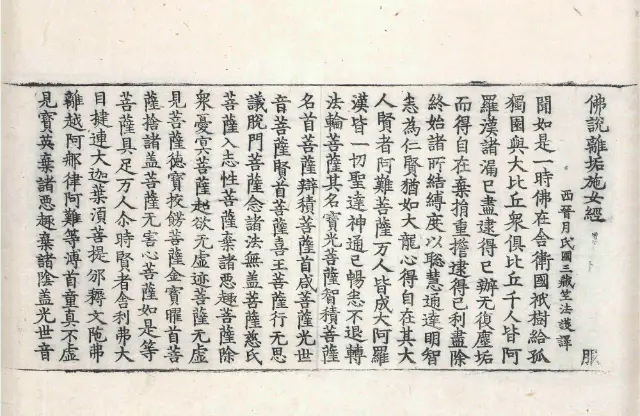 佛說離垢施女經
服
西晉月氏國三藏竺法護譯
聞如是一時佛在舍衛國祇樹給孤
獨園與大比丘衆俱比丘千人皆阿
羅漢諸漏已盡逮得已辦无復塵垢
而得自在棄捐重擔逮得已利盡除
終始諸所結縛度以聡慧通達明智
悉為仁賢猶如大龍心得自在其大
人賢者阿難菩薩万人皆成大阿羅
漢皆一切聖達神通已暢悉不退轉
法輪菩薩其名寶光菩薩智積菩薩
名首菩薩辯積菩薩首咸菩薩光世
音菩薩賢首菩薩喜王菩薩行无思
議脫門菩薩念諸法無盖菩薩慈氏
菩薩入志性菩薩棄諸惡趣菩薩除
衆憂冥菩薩越欲无虛迹菩薩无虛
見菩薩德寶按鎊菩薩金寶曜首菩
薩捨諸盖菩薩无害心菩薩如是等
菩薩具足万人尒時賢者舎利弗大
目揵連大迦葉湏菩提邠耨文陁弗
離越阿那律阿難等溥首童真不虛
見寶英棄諸惡趣棄諸陰盖光世音